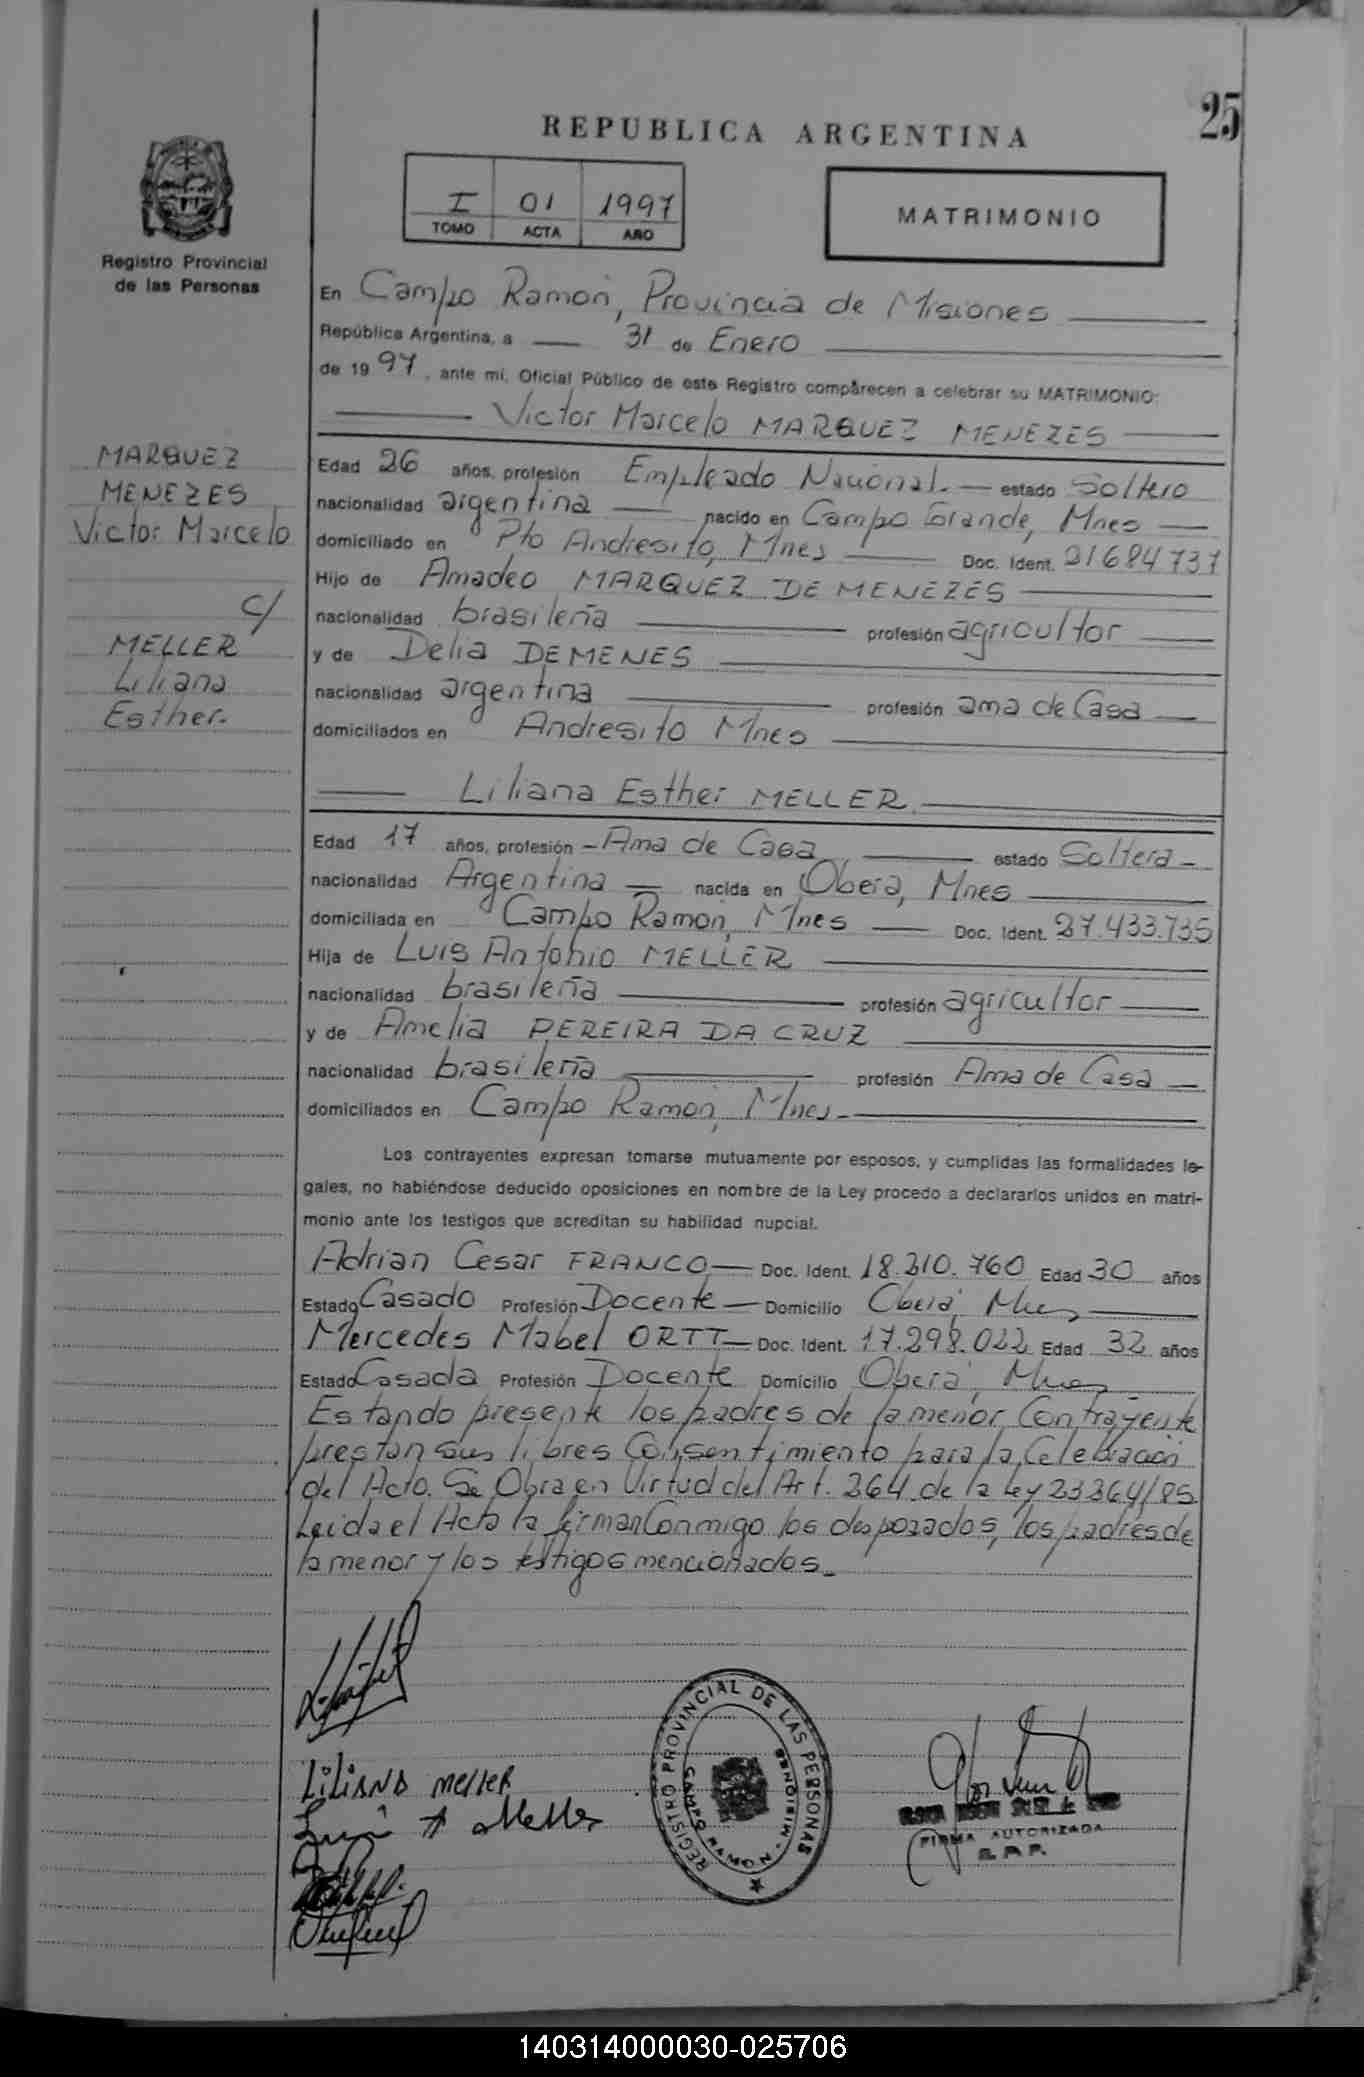 25
REPUBLICA ARGENTINA
I 01 1997
TOMO ACTA AÑO
MATRIMONIO
Registro Provincial
de las Personas
En Campo Ramon, Provincia de Misiones
República Argentina, a 31 de Enero
de 1997, ante mí, Oficial Público de este Registro comparecen a celebrar su MATRIMONIO:
Victor Marcelo MARQUEZ MENEZES
MARQUEZ
MENEZES
Victor Marcelo
c/
MELLER
Liliana
Esther.
Edad 26 años, profesión Empleado Nacional.- estado Soltero
nacionalidad argentina nacido en Campo Grande, Mnes
domiciliado en Pto Andresito, Mnes Doc. Ident. 21684737
Hijo de Amadeo MARQUEZ DE MENEZES
nacionalidad brasileña profesión agricultor
y de Delia DEMENES
nacionalidad argentina profesión ama de Casa
domiciliados en Andresito Mnes
Liliana Esther MELLER.
Edad 17 años, profesión - Ama de Casa estado Soltera -
nacionalidad Argentina nacida en Oberá, Mnes
domiciliada en Campo Ramon, Mnes Doc. Ident. 27.433.735
Hija de Luis Antonio MELLER
nacionalidad brasileña profesión agricultor
y de Amelia PEREIRA DA CRUZ
nacionalidad brasileña profesión Ama de Casa
domiciliados en Campo Ramon, Mnes-
Los contrayentes expresan tomarse mutuamente por esposos, y cumplidas las formalidades le-
gales, no habiéndose deducido oposiciones en nombre de la Ley procedo a declararlos unidos en matri-
monio ante los testigos que acreditan su habilidad nupcial.
Adrian Cesar FRANCO Doc. Ident. 18.210.760 Edad 30 años
Estado Casado Profesión Docente Domicilio Oberá, Mnes
Mercedes Mabel ORTT Doc. Ident. 17.298.022 Edad 32 años
Estado Casada Profesión Docente Domicilio Oberá, Mnes
Estando presente los padres de la menor Contrayente
prestan sus libres Consentimiento para la Celebración
del Acto. Se Obra en Virtud del Art. 264 de la Ley 23264/85
Leida el Acta la firman Conmigo los desposados, los padres de
la menor y los testigos mencionados.-
LiLiANA MELLER
Luis A Meller
REGISTRO PROVINCIAL DE LAS PERSONAS
CAMPO RAMON - MISIONES
FIRMA AUTORIZADA
R. P. P.
140314000030-025706